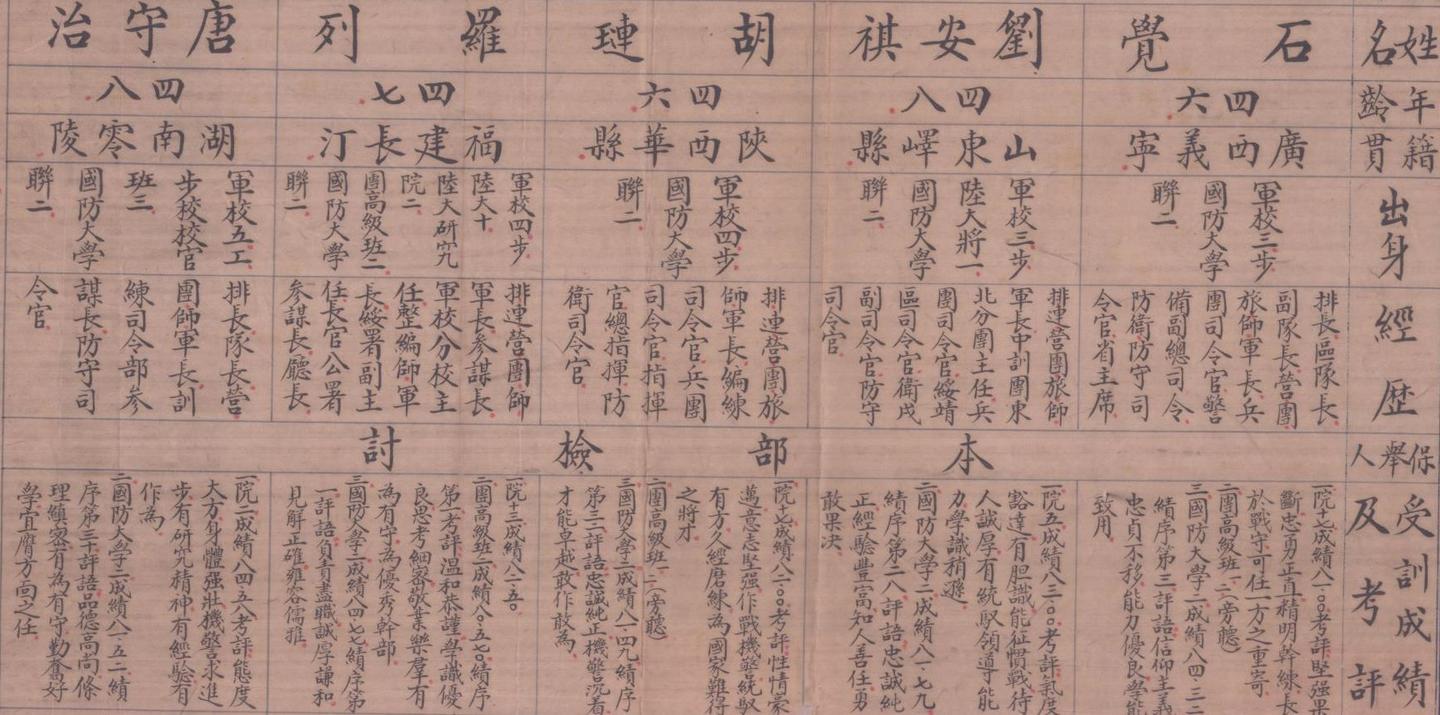 姓名
年齡
籍貫
出身
經歷
保舉人
受訓成績
及考評
石覺
四六
廣西義寧
軍校三步
國防大學
聯二
排長區隊長
副隊長營團
旅師軍長兵
團司令官警
備副總司令
防衛防守司
令官省主席
本部檢討
一院七成績八一·〇〇考評堅强果
斷忠勇正直精明幹練長
於戰守可任一方之重寄
二團高級班一、二(旁聽)
三國防大學二成績八四·三三
績序第三評語信仰主義
忠貞不移能力優良學能
致用
劉安祺
四八
山東嶧縣
軍校三步
陸大將一
國防大學
聯二
排連營團旅師
軍長中訓團東
北分團主任兵
團司令官綏靖
區司令官衛戍
副司令官防守
司令官
一院五成績八三·〇〇考評氣度
豁達有胆識能征慣戰待
人誠厚有統馭領導能
力學識稍遜
二國防大學二成績八一·七九
績序第二八評語忠誠純
正經驗豐富知人善任勇
敢果決
胡璉
四六
陝西華縣
軍校四步
國防大學
聯二
排連營團旅
師軍長編練
司令官兵團
司令官指揮
官總指揮防
衛司令官
一院七成績八二·〇〇考評性情豪
邁意志堅强作戰機警統馭
有方久經磨練為國家難得
之將才
二團高級班一、二(旁聽)
三國防大學二成績八一·四九績序
第三二評語忠誠純正機警沉着
才能卓越敢作敢為
羅列
四七
福建長汀
軍校四步
陸大十
陸大研究
院二
團高級班二
國防大學
聯二
排連營團師
軍長參謀長
軍校分校主
任整編師軍
長綏署副主
任長官公署
參謀長廳長
一院十三成績八二·五〇
二團高級班二成績八〇·五七〇績序
第一考評溫和恭謹學識優
良思考細密敬業樂羣有
為有守為優秀幹部
三國防大學二成績八四·七七績序第
一評語負責盡職誠厚謙和
見解正確雍容儒雅
唐守治
四八
湖南零陵
軍校五工
步校校官
班三
國防大學
聯二
排長隊長營
團師軍長訓
練司令部參
謀長防守司
令官
一院二成績八四·五八考評態度
大方身體强壯機警求進
步有研究精神有經驗有
作為
二國防大學二成績八一·五二績
序第三十評語品德高尚條
理縝密有為有守勤奮好
學宜膺方面之任